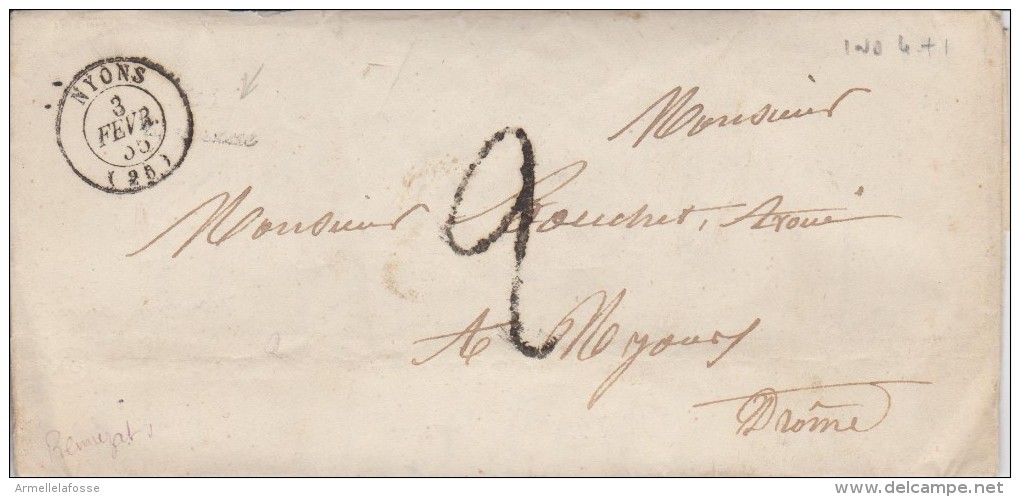 NYONS
3
FEVR.
55
(25)
IND 4 + 1
Monsieur
Monsieur Bouchet, Avoué
2
A Nyons
Drôme
Remuzat
Armellelafosse
delcampe.net